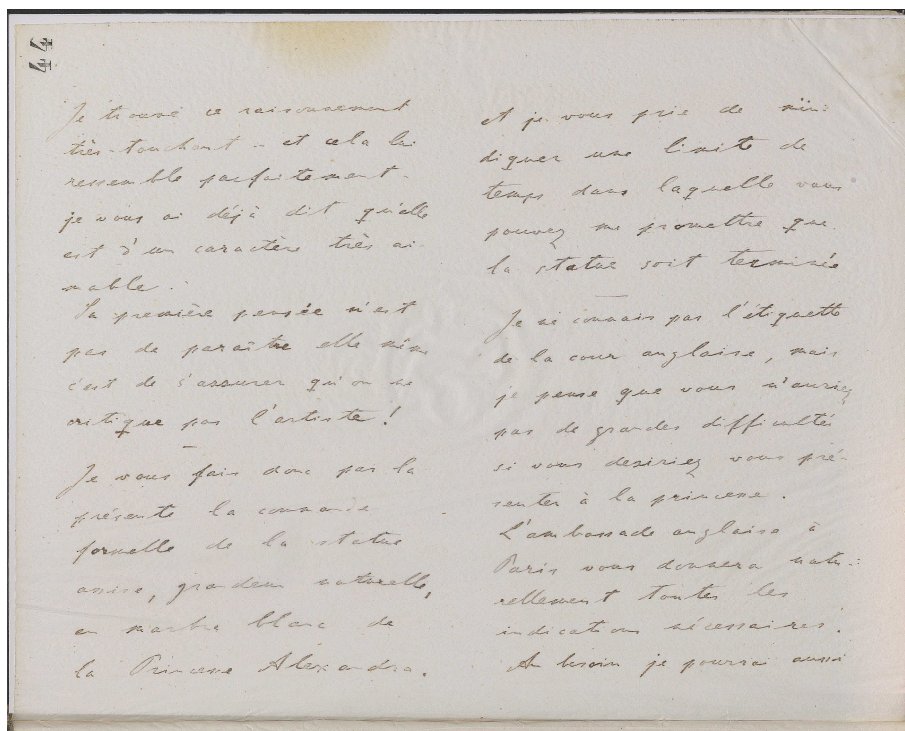 44
Je trouve ce raisonnement
très-touchant - et cela lui
ressemble parfaitement -
je vous ai déjà dit qu'elle
est d'un caractère très ai-
mable.
Sa première pensée n'est
pas de paraître elle même
c'est de s'assurer qu'on ne
critique pas l'artiste !
Je vous fais donc par la
présente la commande
formelle de la statue
assise, grandeur naturelle,
en marbre blanc de
la Princesse Alexandra.
et je vous prie de m'in-
diquer une limite de
temps dans laquelle vous
pouvez me promettre que
la statue soit terminée
Je ne connais pas l'étiquette
de la cour anglaise, mais
je pense que vous n'auriez
pas de grandes difficultés
si vous desiriez vous pré-
senter à la princesse.
L'ambassade anglaise à
Paris vous donnera natu-
rellement toutes les
indications nécessaires.
Au besoin je pourrai aussi